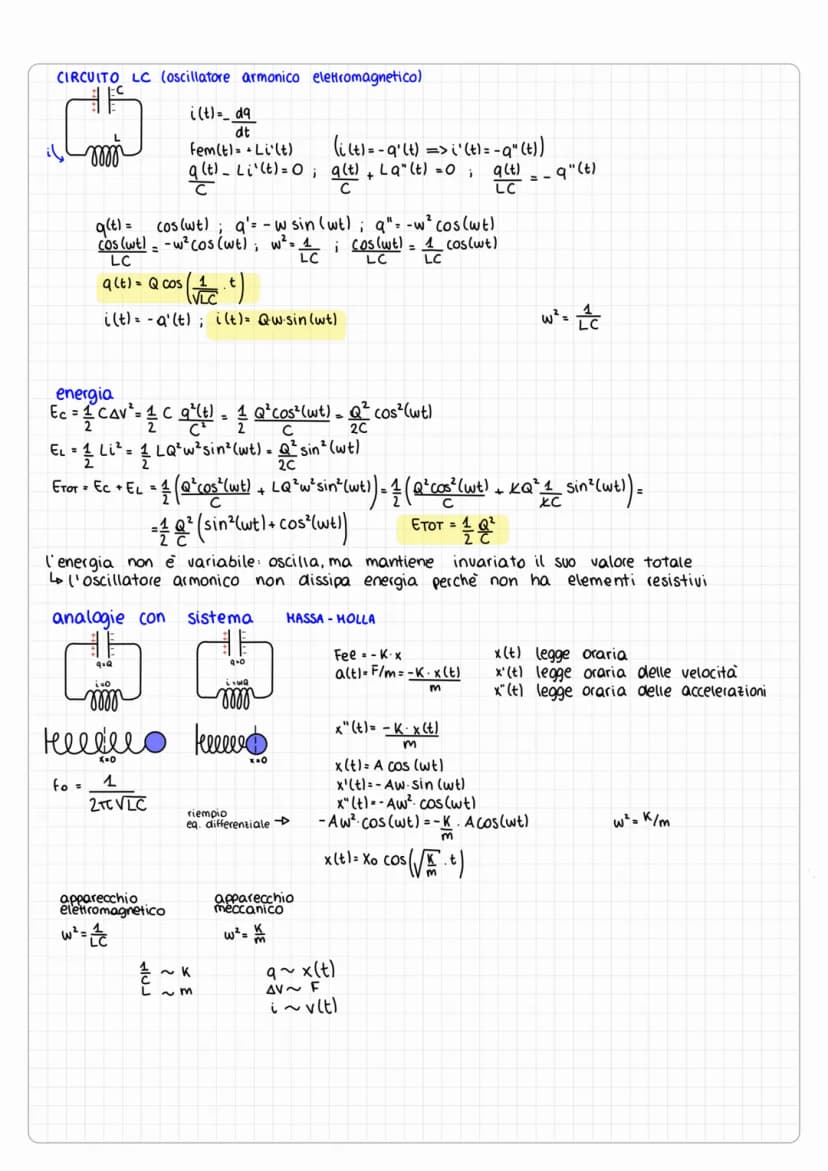 CIRCUITO LC (oscillatore armonico elettromagnetico)
C
L
i
i(t)=-dq/dt
fem(t)= + Li'(t) (i(t)=-q'(t) => i'(t)=-q"(t))
q(t)/C - Li'(t)=0 ; q(t)/C + Lq"(t)=0 ; q(t)/LC = - q"(t)
q(t)= cos(wt) ; q'= -w sin(wt) ; q"= -w² cos(wt)
cos(wt)/LC = -w² cos(wt) ; w²= 1/LC ; cos(wt)/LC = 1/LC cos(wt)
q(t)= Q cos(1/√LC · t)
i(t)= -q'(t) ; i(t)= Q·w·sin(wt) w²= 1/LC
energia
Ec = 1/2 CΔV² = 1/2 C q²(t)/C² = 1/2 Q²cos²(wt)/C = Q²/2C cos²(wt)
EL = 1/2 Li² = 1/2 LQ²w²sin²(wt) = Q²/2C sin²(wt)
ETOT = Ec + EL = 1/2 (Q²cos²(wt)/C + LQ²w²sin²(wt)) = 1/2 (Q²cos²(wt)/C + LQ² 1/LC sin²(wt)) =
= 1/2 Q²/C (sin²(wt) + cos²(wt)) ETOT = 1/2 Q²/C
l'energia non è variabile: oscilla, ma mantiene invariato il suo valore totale
↳ l'oscillatore armonico non dissipa energia perchè non ha elementi resistivi
analogie con sistema MASSA-MOLLA
q=Q q=0
i=0 i=wQ
x=0 x=0
Fee = -K·x x(t) legge oraria
a(t)= F/m = -K·x(t)/m x'(t) legge oraria delle velocità
x"(t) legge oraria delle accelerazioni
x"(t)= -K·x(t)/m
x(t)= A cos(wt)
fo = 1/2π√LC x'(t)= -Aw·sin(wt)
x"(t)= -Aw²·cos(wt)
riempio
eq. differenziale → -Aw²·cos(wt) = -K/m · A cos(wt) w²= K/m
x(t)= Xo cos(√K/m · t)
apparecchio elettromagnetico apparecchio meccanico
w²= 1/LC w²= K/m
1/C ~ K q ~ x(t)
L ~ m ΔV ~ F
i ~ v(t)